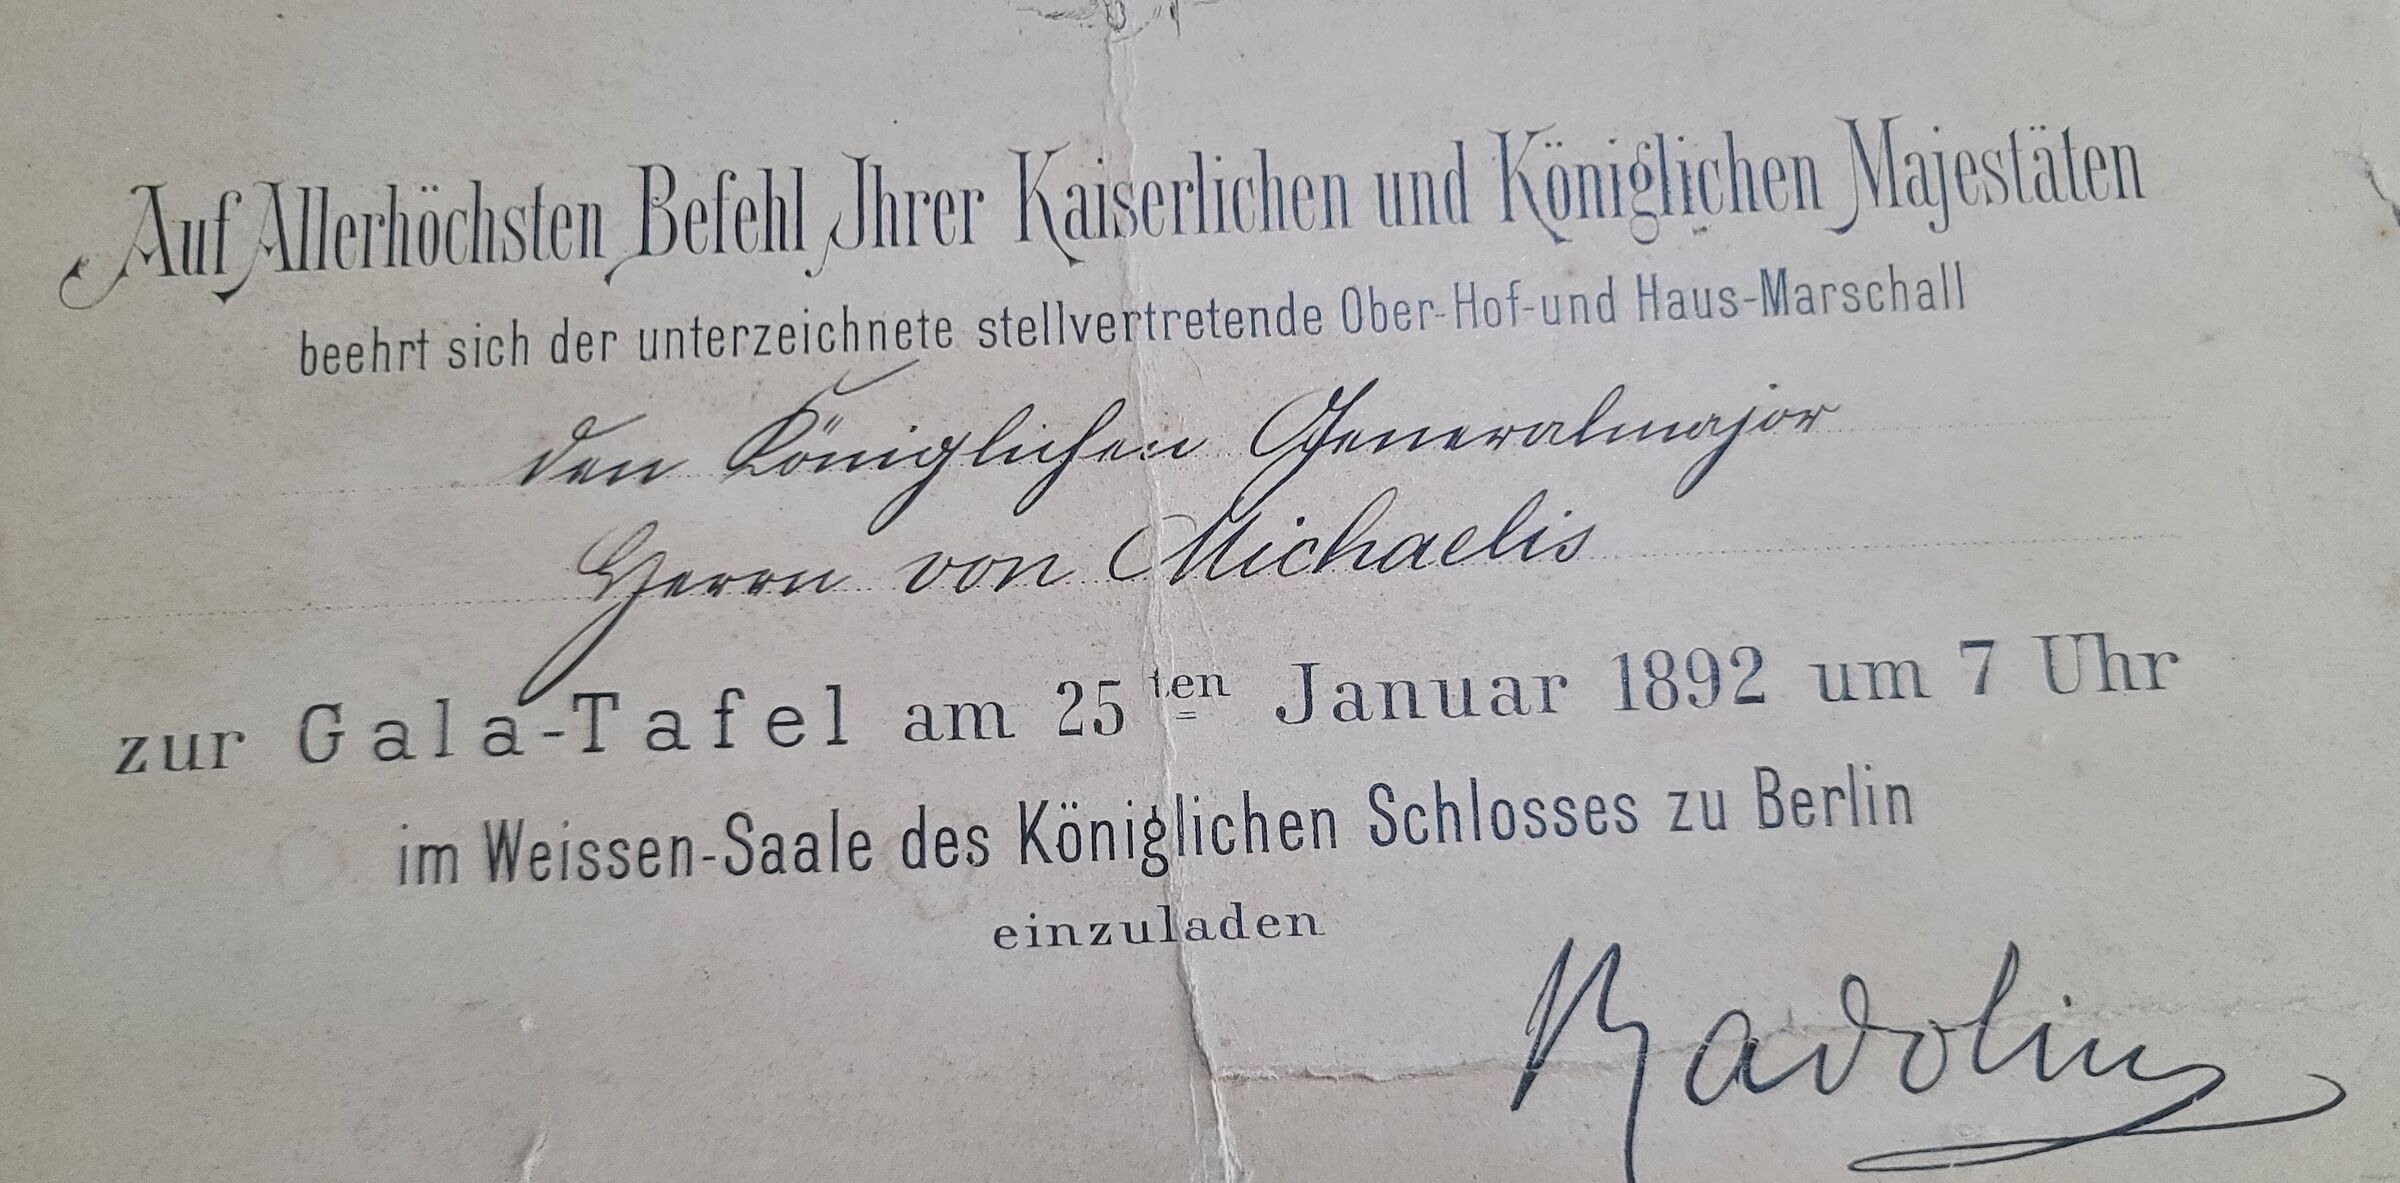 Auf Allerhöchsten Befehl Jhrer Kaiserlichen und Königlichen Majestäten
beehrt sich der unterzeichnete stellvertretende Ober-Hof-und Haus-Marschall
den Königlichen Generalmajor
Herrn von Michaelis
zur Gala-Tafel am 25ten Januar 1892 um 7 Uhr
im Weissen-Saale des Königlichen Schlosses zu Berlin
einzuladen
Radolin